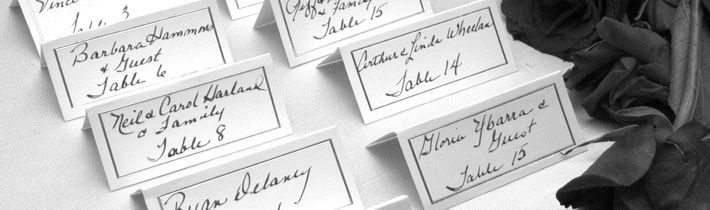 Vince
Table 3
Barbara Hammons
& Guest
Table 6
Neil & Carol Harland
& Family
Table 8
Ryan Delaney
& Family
Table 15
Arthur & Linda Wheelan
Table 14
Gloria Ybarra &
Guest
Table 15